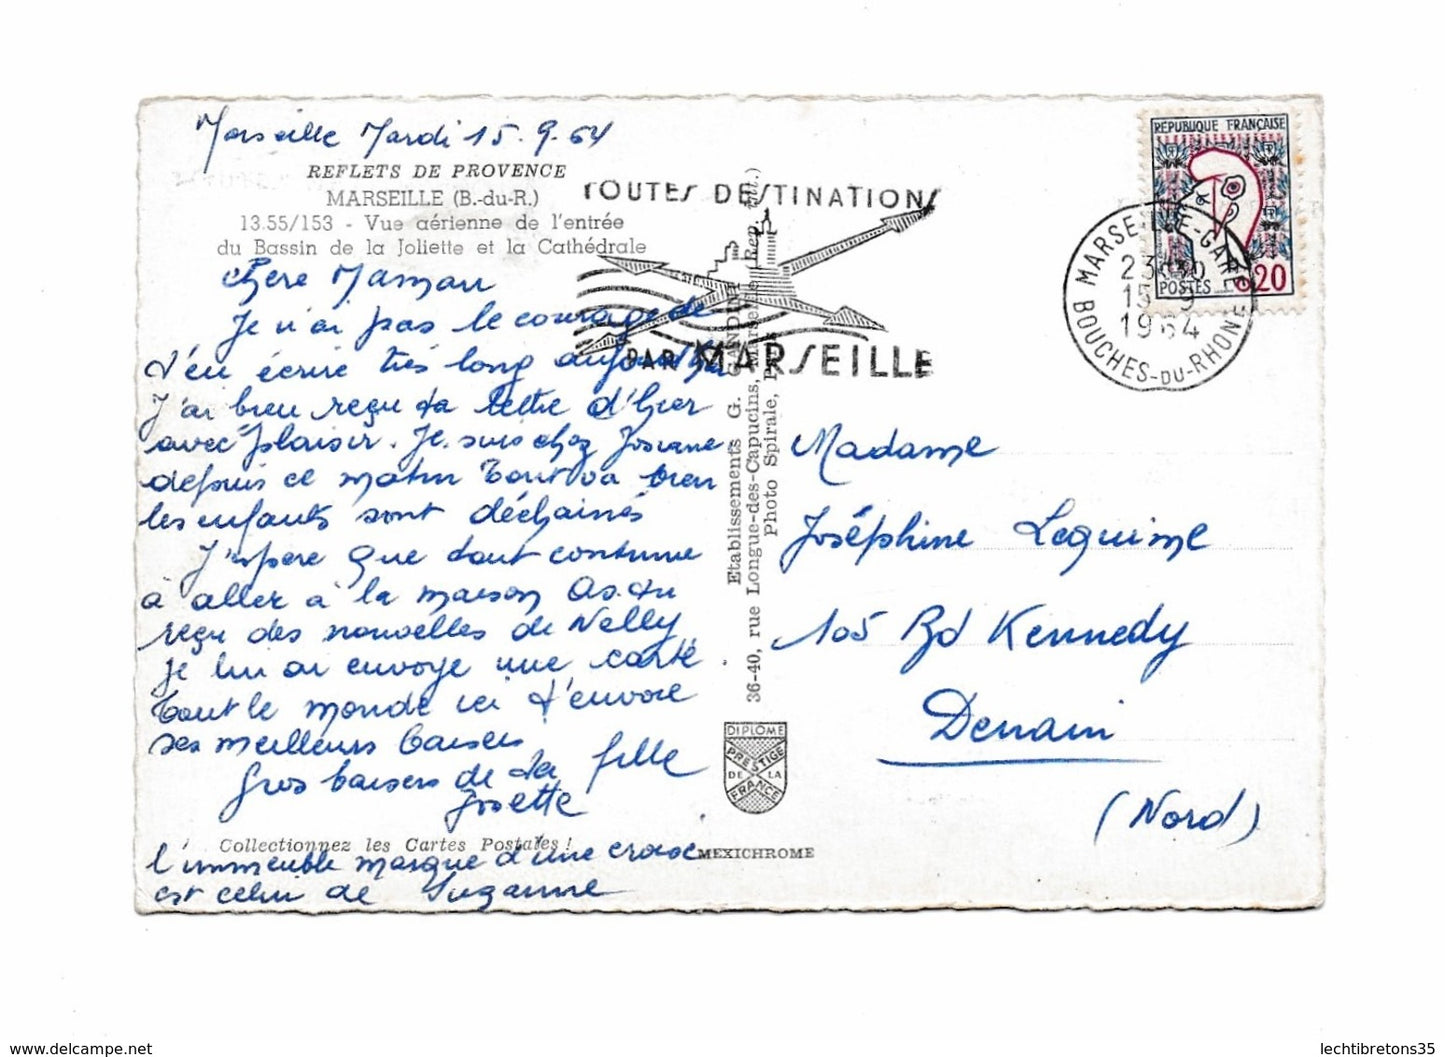 Marseille Mardi 15.9.64
REFLETS DE PROVENCE
MARSEILLE (B.-du-R.)
13.55/153 - Vue aérienne de l'entrée
du Bassin de la Joliette et la Cathédrale
Chère Maman
Je n'ai pas le courage de
t'en écrire très long aujourd'hui
J'ai bien reçu ta lettre d'hier
avec plaisir. Je suis chez Josiane
depuis ce matin Tout va bien
les enfants sont déchainés
J'espere que tout continue
à aller à la maison As-tu
reçu des nouvelles de Nelly
je lui ai envoyé une carte
Tout le monde ici t'envoie
ses meilleurs baisers
Gros baisers de ta fille
Josette
Collectionnez les Cartes Postales !
l'immeuble marqué d'une croix
est celui de Suzanne
TOUTES DESTINATIONS
PAR MARSEILLE
Etablissements G. GANDINI
36-40, rue Longue-des-Capucins, Marseille
Photo Spirale,
DIPLOME
PRESTIGE
DE LA
FRANCE
MEXICHROME
RÉPUBLIQUE FRANÇAISE
POSTES 0,20
MARSEILLE-GARE
23H30
15-9
1964
BOUCHES-DU-RHONE
Madame
Joséphine Lequime
105 Bd Kennedy
Denain
(Nord)
lechtibretons35
https://www.delcampe.net